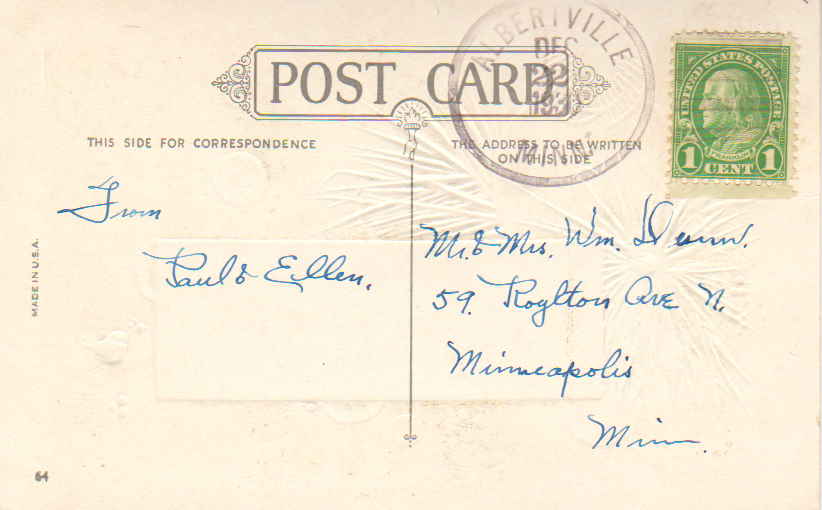 POST CARD
ALBERTVILLE
DEC
22
MINN.
UNITED STATES POSTAGE
FRANKLIN
1 CENT 1
THIS SIDE FOR CORRESPONDENCE
THE ADDRESS TO BE WRITTEN
ON THIS SIDE
From
Paul & Ellen.
Mr. & Mrs. Wm. Dunn.
59. Roylton Ave N.
Minneapolis
Minn.
MADE IN U.S.A.
64